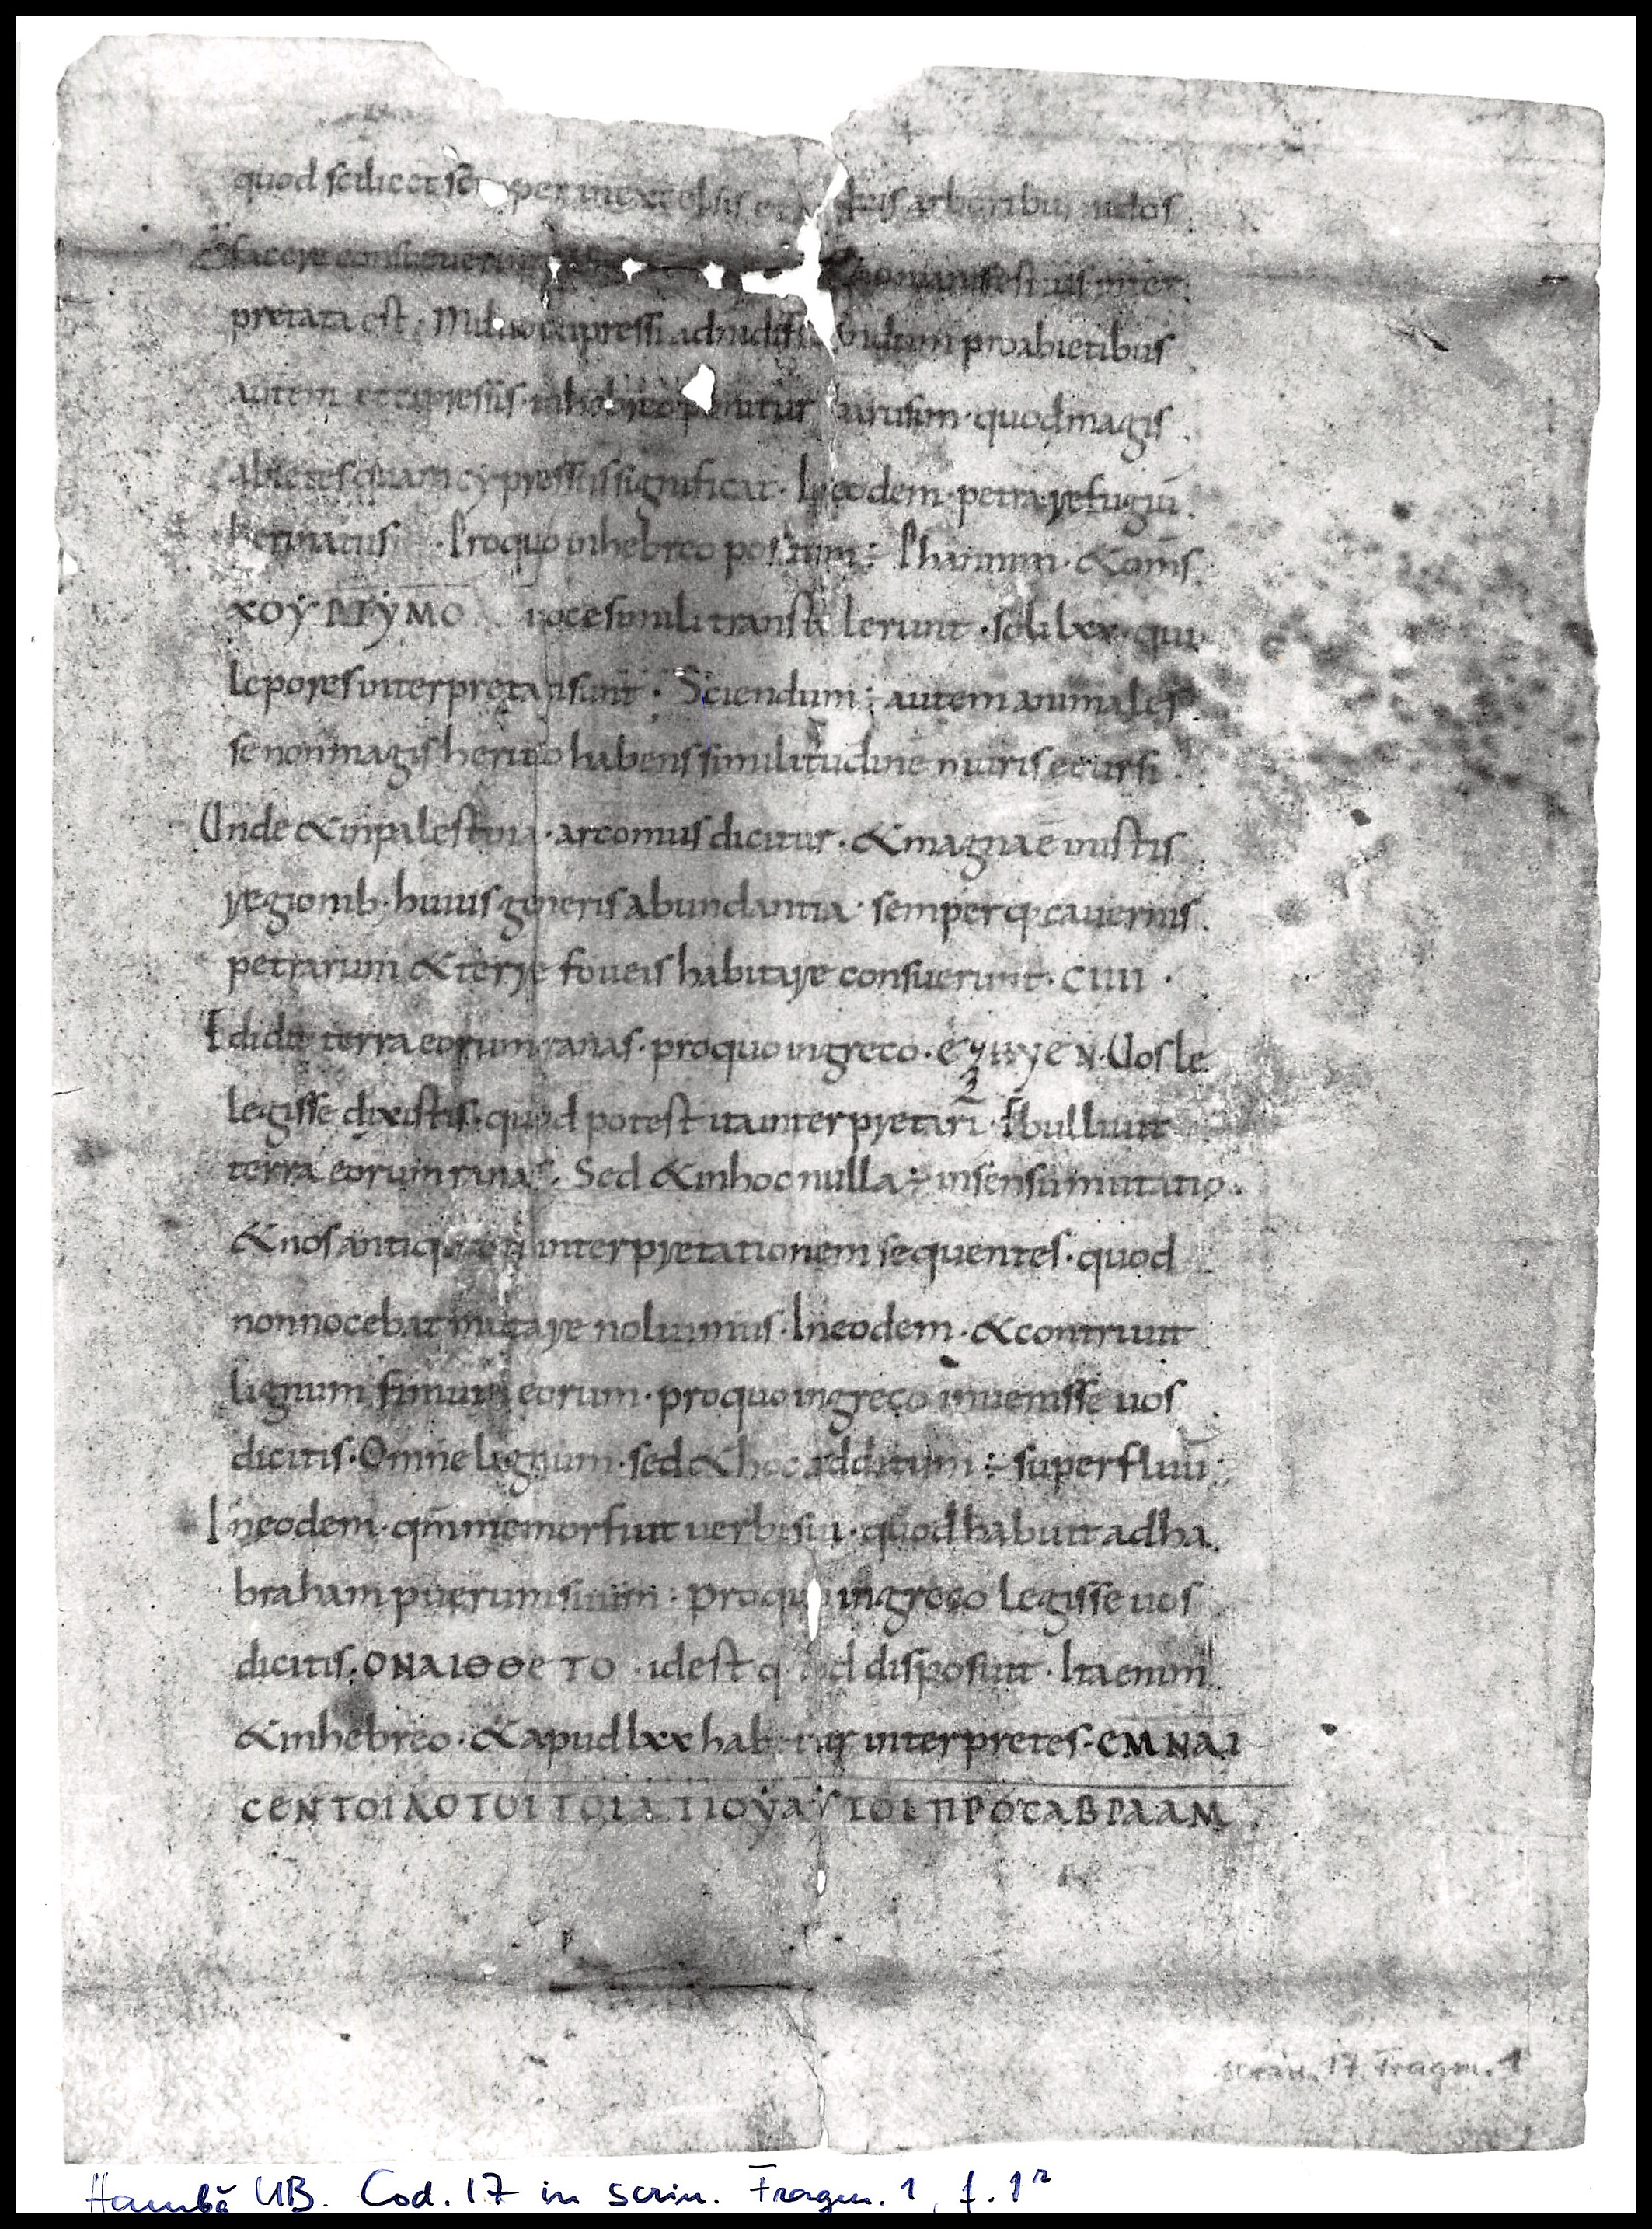 quod scilicet semper in excelsis et arduis arboribus nidos
facere consueuerint manifestius inter
pretata est · Miluo cupressi ad nidificandum pro abietibus
autem et cupressis · in hebreo ponitur arusim · quod magis
abietes quam cypressis significat · In eodem · petra refugiū
herinatiis · Pro quo in hebreo positum ÷ Phannim · & om̄s
χΟΥΡΠΥΜΟ uoce simili transtulerunt · soli lxx · qui
lepores interpretati sunt · Sciendum ÷ autem animal es
se non magis hericio habens similitudine muris et ursi ·
Unde & in palestina · arcomus dicitur · & magna ē in istis
regionib · huius generis abundantia · semperq · cauernis
petrarum & terre foueis habitare consuerunt · CIIII ·
Edidit terra eorum ranas · pro quo in greco · Uos le
legisse dixistis · quod potest ita interpretari · Ebulliuit
terra eorum ranas · Sed & in hoc nulla ÷ in sensu mutatio ·
& nos antiquam interpretationem sequentes · quod
non nocebat mutare noluimus · In eodem · & contriuit
lignum finium eorum · pro quo in greco inuenisse uos
dicitis · Omne lignum · sed & hoc additum ÷ superfluū ·
In eodem · qm̄ memor fuit uerbi sui · quod habuit ad ha
braham puerum suum · pro quo in greco legisse uos
dicitis · ΟΝΑΙΘΘΕΤΟ · id est quod disposuit · Ita enim
& in hebreo · & apud lxx habetur interpretes · ЄΜΝΑΙ
CЄΝΤΟΙΛΟΤΟΙΤΟΙΑΤΙΟΥΑΥΤΟΙΠΡΟCΑΒΡΑΑΜ
scrin. 17 Fragm. 1
Hambg UB. Cod. 17 in scrin. Fragm. 1, f. 1ʳ